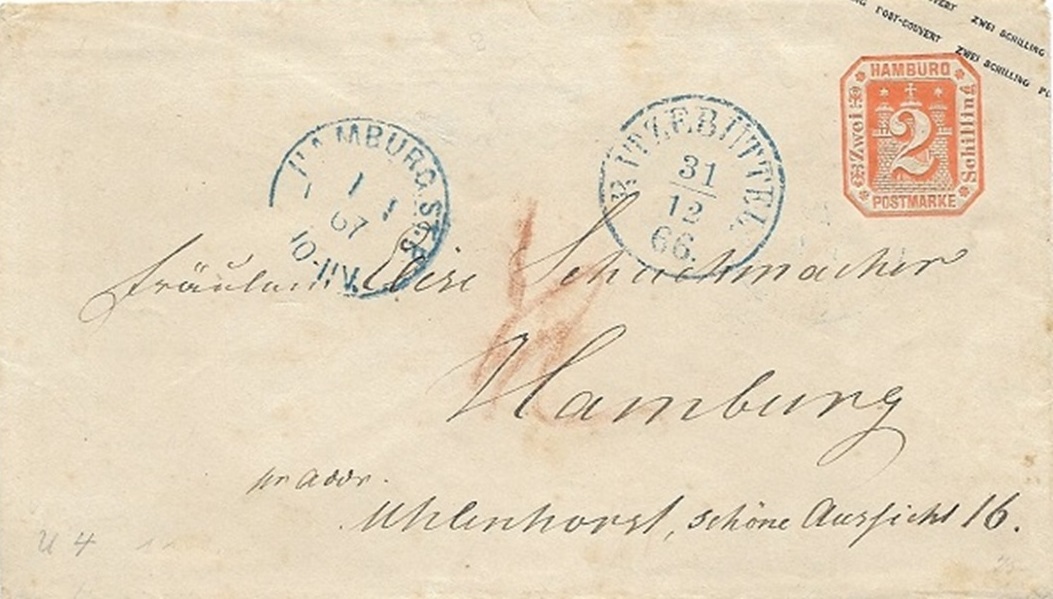 POST-COUVERT ZWEI SCHILLING
POST-COUVERT ZWEI SCHILLING
HAMBURG
Zwei
2
Schilling
POSTMARKE
HAMBURG. ST. P.
1
1
67
10-11V.
RITZEBÜTTEL
31
12
66.
Fräulein Elise Schuchmacher
Hamburg
pr addr.
Uhlenhorst, schöne Aussicht 16.
U 4